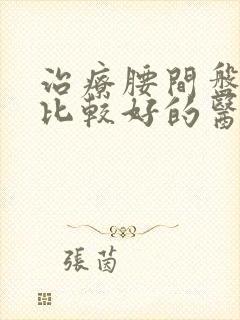 治療腰間盤
比較好的醫
張茵